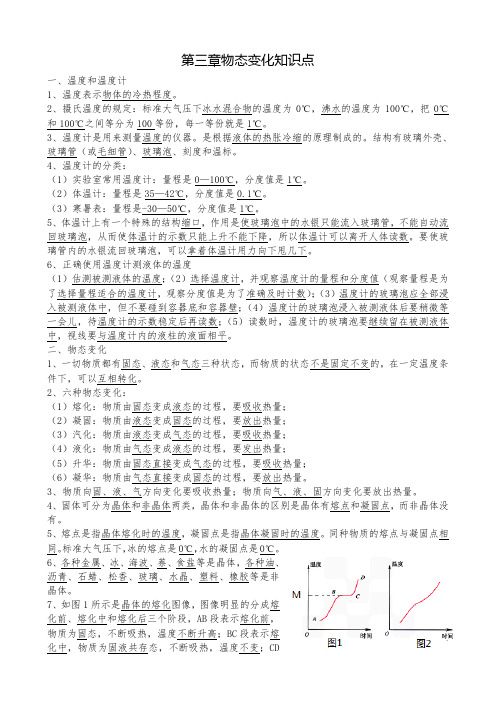 第三章物态变化知识点
一、温度和温度计
1、温度表示物体的冷热程度。
2、摄氏温度的规定：标准大气压下冰水混合物的温度为 0℃，沸水的温度为 100℃，把 0℃
和 100℃之间等分为 100 等份，每一等份就是 1℃。
3、温度计是用来测量温度的仪器。是根据液体的热胀冷缩的原理制成的。结构有玻璃外壳、
玻璃管（或毛细管）、玻璃泡、刻度和温标。
4、温度计的分类：
（1）实验室常用温度计：量程是 0—100℃，分度值是 1℃。
（2）体温计：量程是 35—42℃，分度值是 0.1℃。
（3）寒暑表：量程是-30—50℃，分度值是 1℃。
5、体温计上有一个特殊的结构缩口，作用是使玻璃泡中的水银只能流入玻璃管，不能自动流
回玻璃泡，从而使体温计的示数只能上升不能下降，所以体温计可以离开人体读数。要使玻
璃管内的水银流回玻璃泡，可以拿着体温计用力向下甩几下。
6、正确使用温度计测液体的温度
（1）估测被测液体的温度；（2）选择温度计，并观察温度计的量程和分度值（观察量程是为
了选择量程适合的温度计，观察分度值是为了准确及时计数）；（3）温度计的玻璃泡应全部浸
入被测液体中，但不要碰到容器底和容器壁；（4）温度计的玻璃泡浸入被测液体后要稍微等
一会儿，待温度计的示数稳定后再读数；（5）读数时，温度计的玻璃泡要继续留在被测液体
中，视线要与温度计内的液柱的液面相平。
二、物态变化
1、一切物质都有固态、液态和气态三种状态，而物质的状态不是固定不变的，在一定温度条
件下，可以互相转化。
2、六种物态变化：
（1）熔化：物质由固态变成液态的过程，要吸收热量；
（2）凝固：物质由液态变成固态的过程，要放出热量；
（3）汽化：物质由液态变成气态的过程，要吸收热量；
（4）液化：物质由气态变成液态的过程，要发出热量；
（5）升华：物质由固态直接变成气态的过程，要吸收热量；
（6）凝华：物质由气态直接变成固态的过程，要放出热量。
3、物质向固、液、气方向变化要吸收热量；物质向气、液、固方向变化要放出热量。
4、固体可分为晶体和非晶体两类，晶体和非晶体的区别是晶体有熔点和凝固点，而非晶体没
有。
5、熔点是指晶体熔化时的温度，凝固点是指晶体凝固时的温度。同种物质的熔点与凝固点相
同。标准大气压下，冰的熔点是 0℃，水的凝固点是 0℃。
6、各种金属、冰、海波、萘、食盐等是晶体，各种油、
沥青、石蜡、松香、玻璃、水晶、塑料、橡胶等是非
晶体。
7、如图 1 所示是晶体的熔化图像，图像明显的分成熔
化前、熔化中和熔化后三个阶段，AB 段表示熔化前，
物质为固态，不断吸热，温度不断升高；BC 段表示熔
化中，物质为固液共存态，不断吸热，温度不变；CD
温度
D
M
B
C
A
O
时间
图1
温度
O
时间
图2